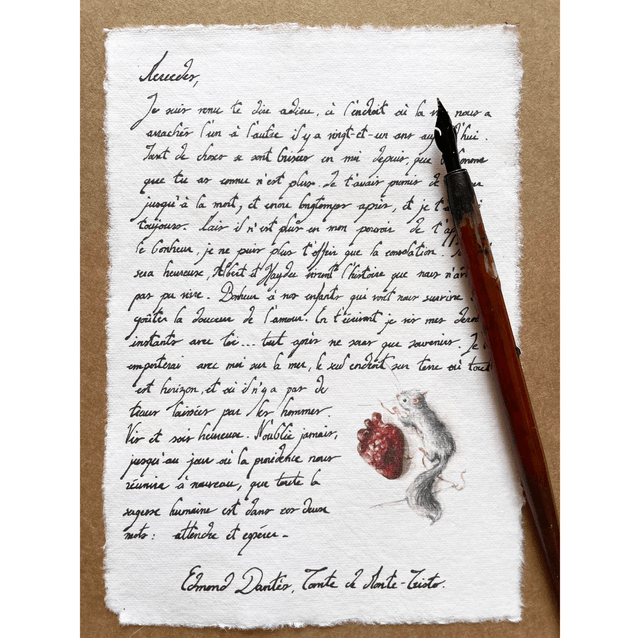 Mercedes,
Je suis venu te dire adieu, à l'endroit où la vie nous a
arrachés l'un à l'autre il y a vingt-et-un ans aujourd'hui.
Tant de choses se sont brisées en moi depuis, que l'homme
que tu as connu n'est plus. Je t'avais promis de
jusqu'à la mort, et encore longtemps après, et je t'
toujours. Mais il n'est plus en mon pouvoir de t'
le bonheur, je ne puis plus t'offrir que la consolation.
sera heureuse, Albert et Haydée vivront l'histoire que nous n'
pas pu vivre. Bonheur à nos enfants qui vont nous survivre
goûter la douceur de l'amour. En t'écrivant je vis mes
instants avec toi... tout après ne sera que souvenirs. Je
emporterai avec moi sur la mer, le seul endroit sur terre où tout
est horizon, et où il n'y a pas de
traces laissées par les hommes.
Vis et sois heureuse. N'oublie jamais,
jusqu'au jour où la providence nous
réunira à nouveau, que toute la
sagesse humaine est dans ces deux
mots : attendre et espérer -
Edmond Dantès, Comte de Monte-Cristo.